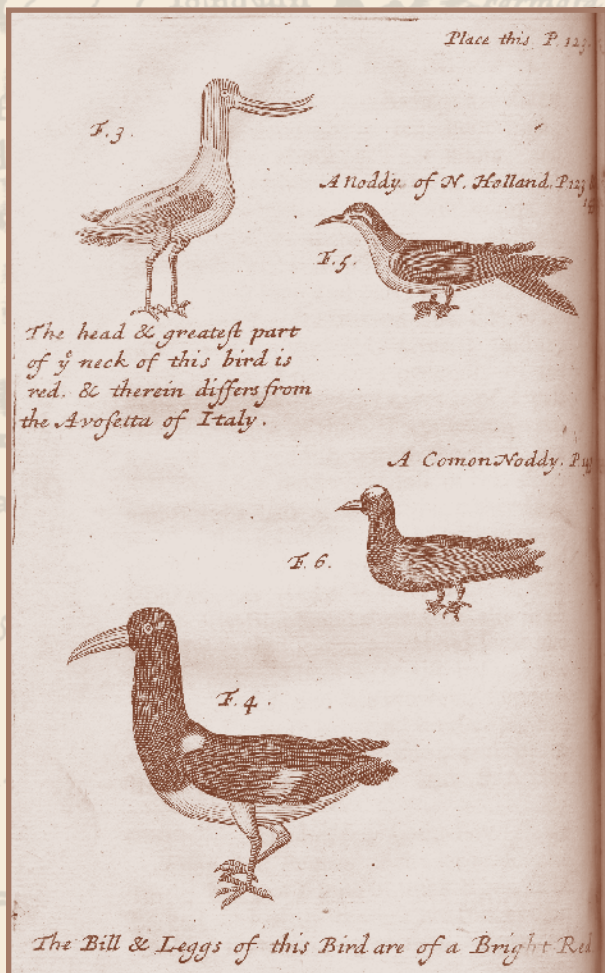 Place this P. 123.
F. 3.
A Noddy of N. Holland. P 123 &
F. 5.
The head & greatest part
of yͤ neck of this bird is
red. & therein differs from
the Avosetta of Italy.
A Comon Noddy. P.
F. 6.
F. 4
The Bill & Leggs of this Bird are of a Bright Red